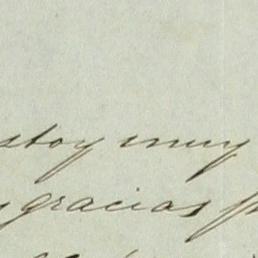 stoy muy
y gracias p